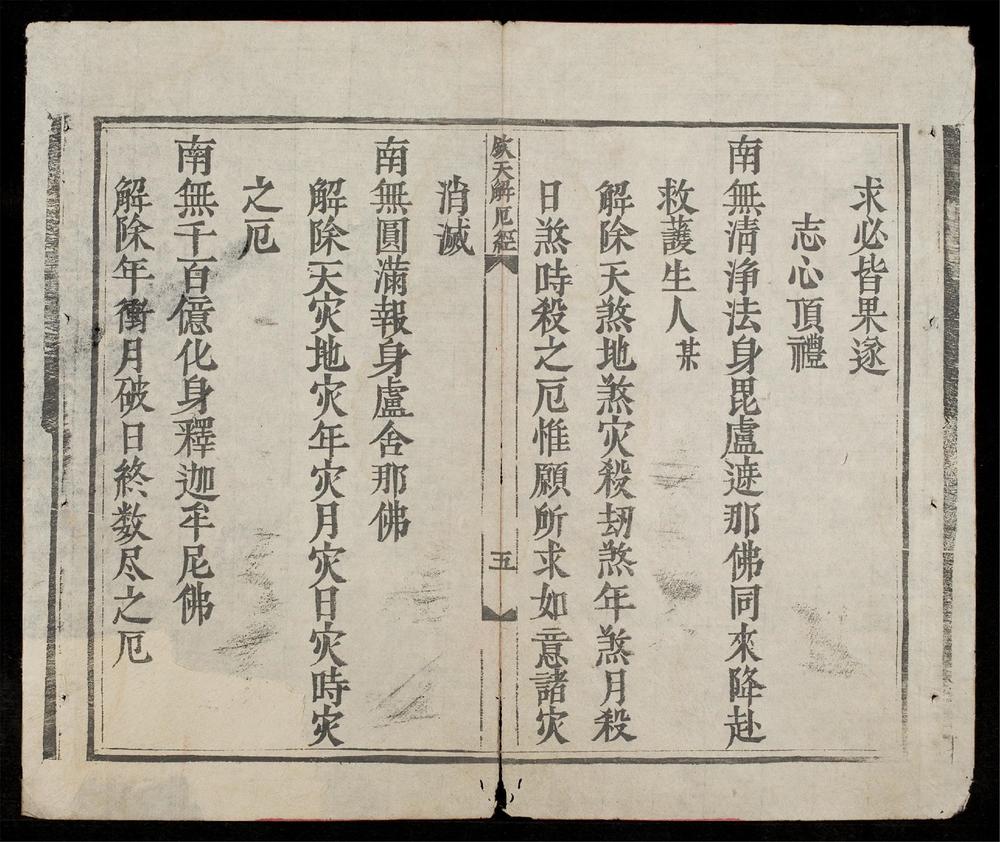 求必皆果遂
志心頂禮
南無清浄法身毘盧遮那佛同來降赴
救護生人某
解除天煞地煞灾殺刼煞年煞月殺
日煞時殺之厄惟願所求如意諸灾
欽天解厄經
五
消滅
南無圓滿報身盧舍那佛
解除天灾地灾年灾月灾日灾時灾
之厄
南無千百億化身釋迦牟尼佛
解除年衝月破日終数尽之厄